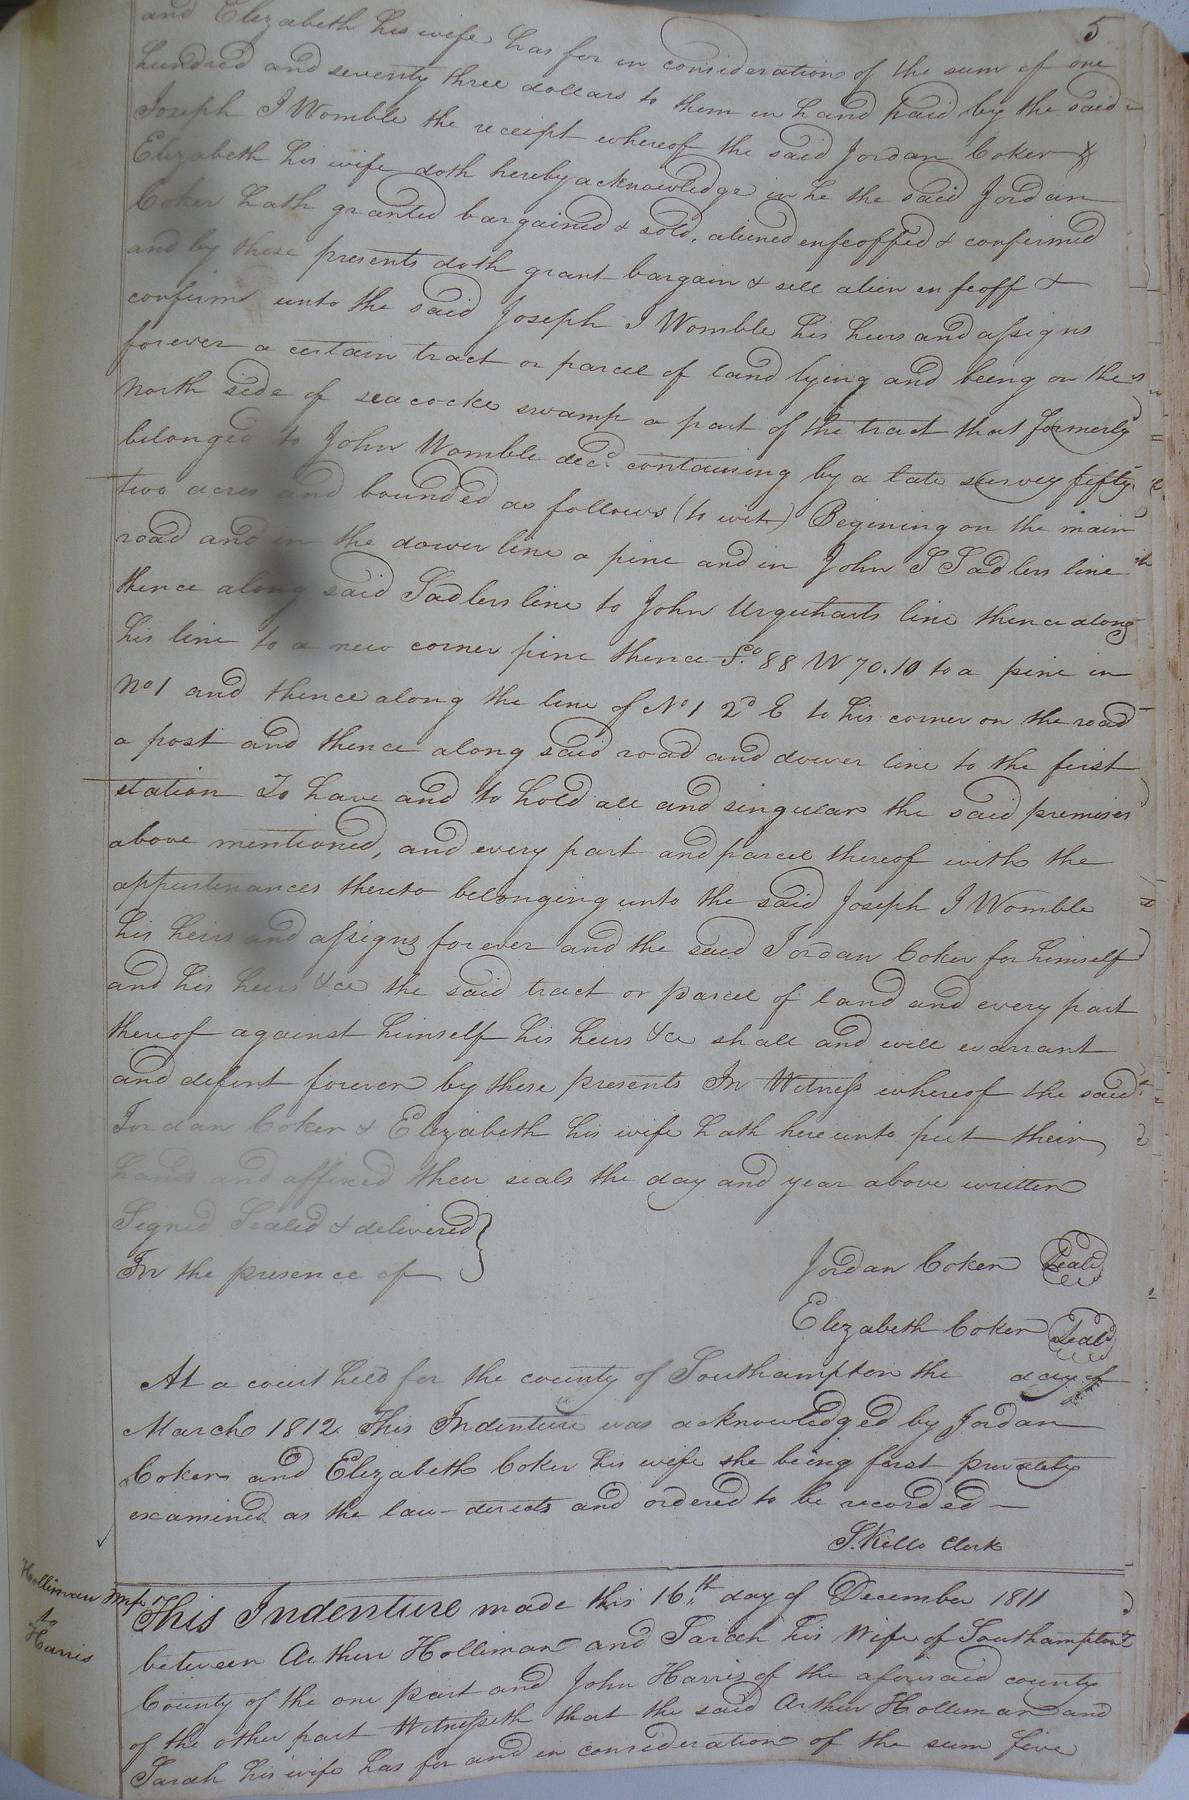 5
and Elizabeth his wife has for in consideration of the sum of one
hundred and seventy three dollars to them in hand paid by the said
Joseph J Womble the receipt whereof the said Jordan Coker &
Elizabeth his wife doth hereby acknowledge in he the said Jordan
Coker hath granted bargained & sold, aliened enfeoffed & confirmed
and by these presents doth grant bargain & sell alien enfeoff &
confirm unto the said Joseph J Womble his heirs and assigns
forever a certain tract or parcel of land lying and being on the
North side of seacocke swamp a part of the tract that formerly
belonged to John Womble decd. containing by a late survey fifty
two acres and bounded as follows (to wit) Begining on the main
road and in the dower line a pine and in John S Sadlers line
thence along said Sadlers line to John Urquharts line thence along
his line to a new corner pine thence So. 88 W 70.10 to a pine in
No 1 and thence along the line of No 1 2d E to his corner on the road
a post and thence along said road and dower line to the first
station To have and to hold all and singular the said premises
above mentioned, and every part and parcel thereof with the
appurtenances thereto belonging unto the said Joseph J Womble
his heirs and assigns forever and the said Jordan Coker for himself
and his heirs &ce the said tract or parcel of land and every part
thereof against himself his heirs &ce shall and will warrant
and defent forever by these presents In Witness whereof the said
Jordan Coker & Elizabeth his wife hath hereunto put their
hands and affixed their seals the day and year above written
Signed Sealed & delivered
In the presence of
Jordan Coker Seal
Elizabeth Coker Seal
At a court held for the county of Southampton the day of
March 1812. This Indenture was acknowledged by Jordan
Coker and Elizabeth Coker his wife she being first privately
examined as the law directs and ordered to be recorded
S. Kello Clerk
Holliman
to
Harris
This Indenture made this 16th. day of December 1811
between Arthur Holliman and Sarah his Wife of Southampton
County of the one part and John Harris of the aforesaid county
of the other part Witnesseth that the said Arthur Holleman and
Sarah his wife has for and in consideration of the sum five